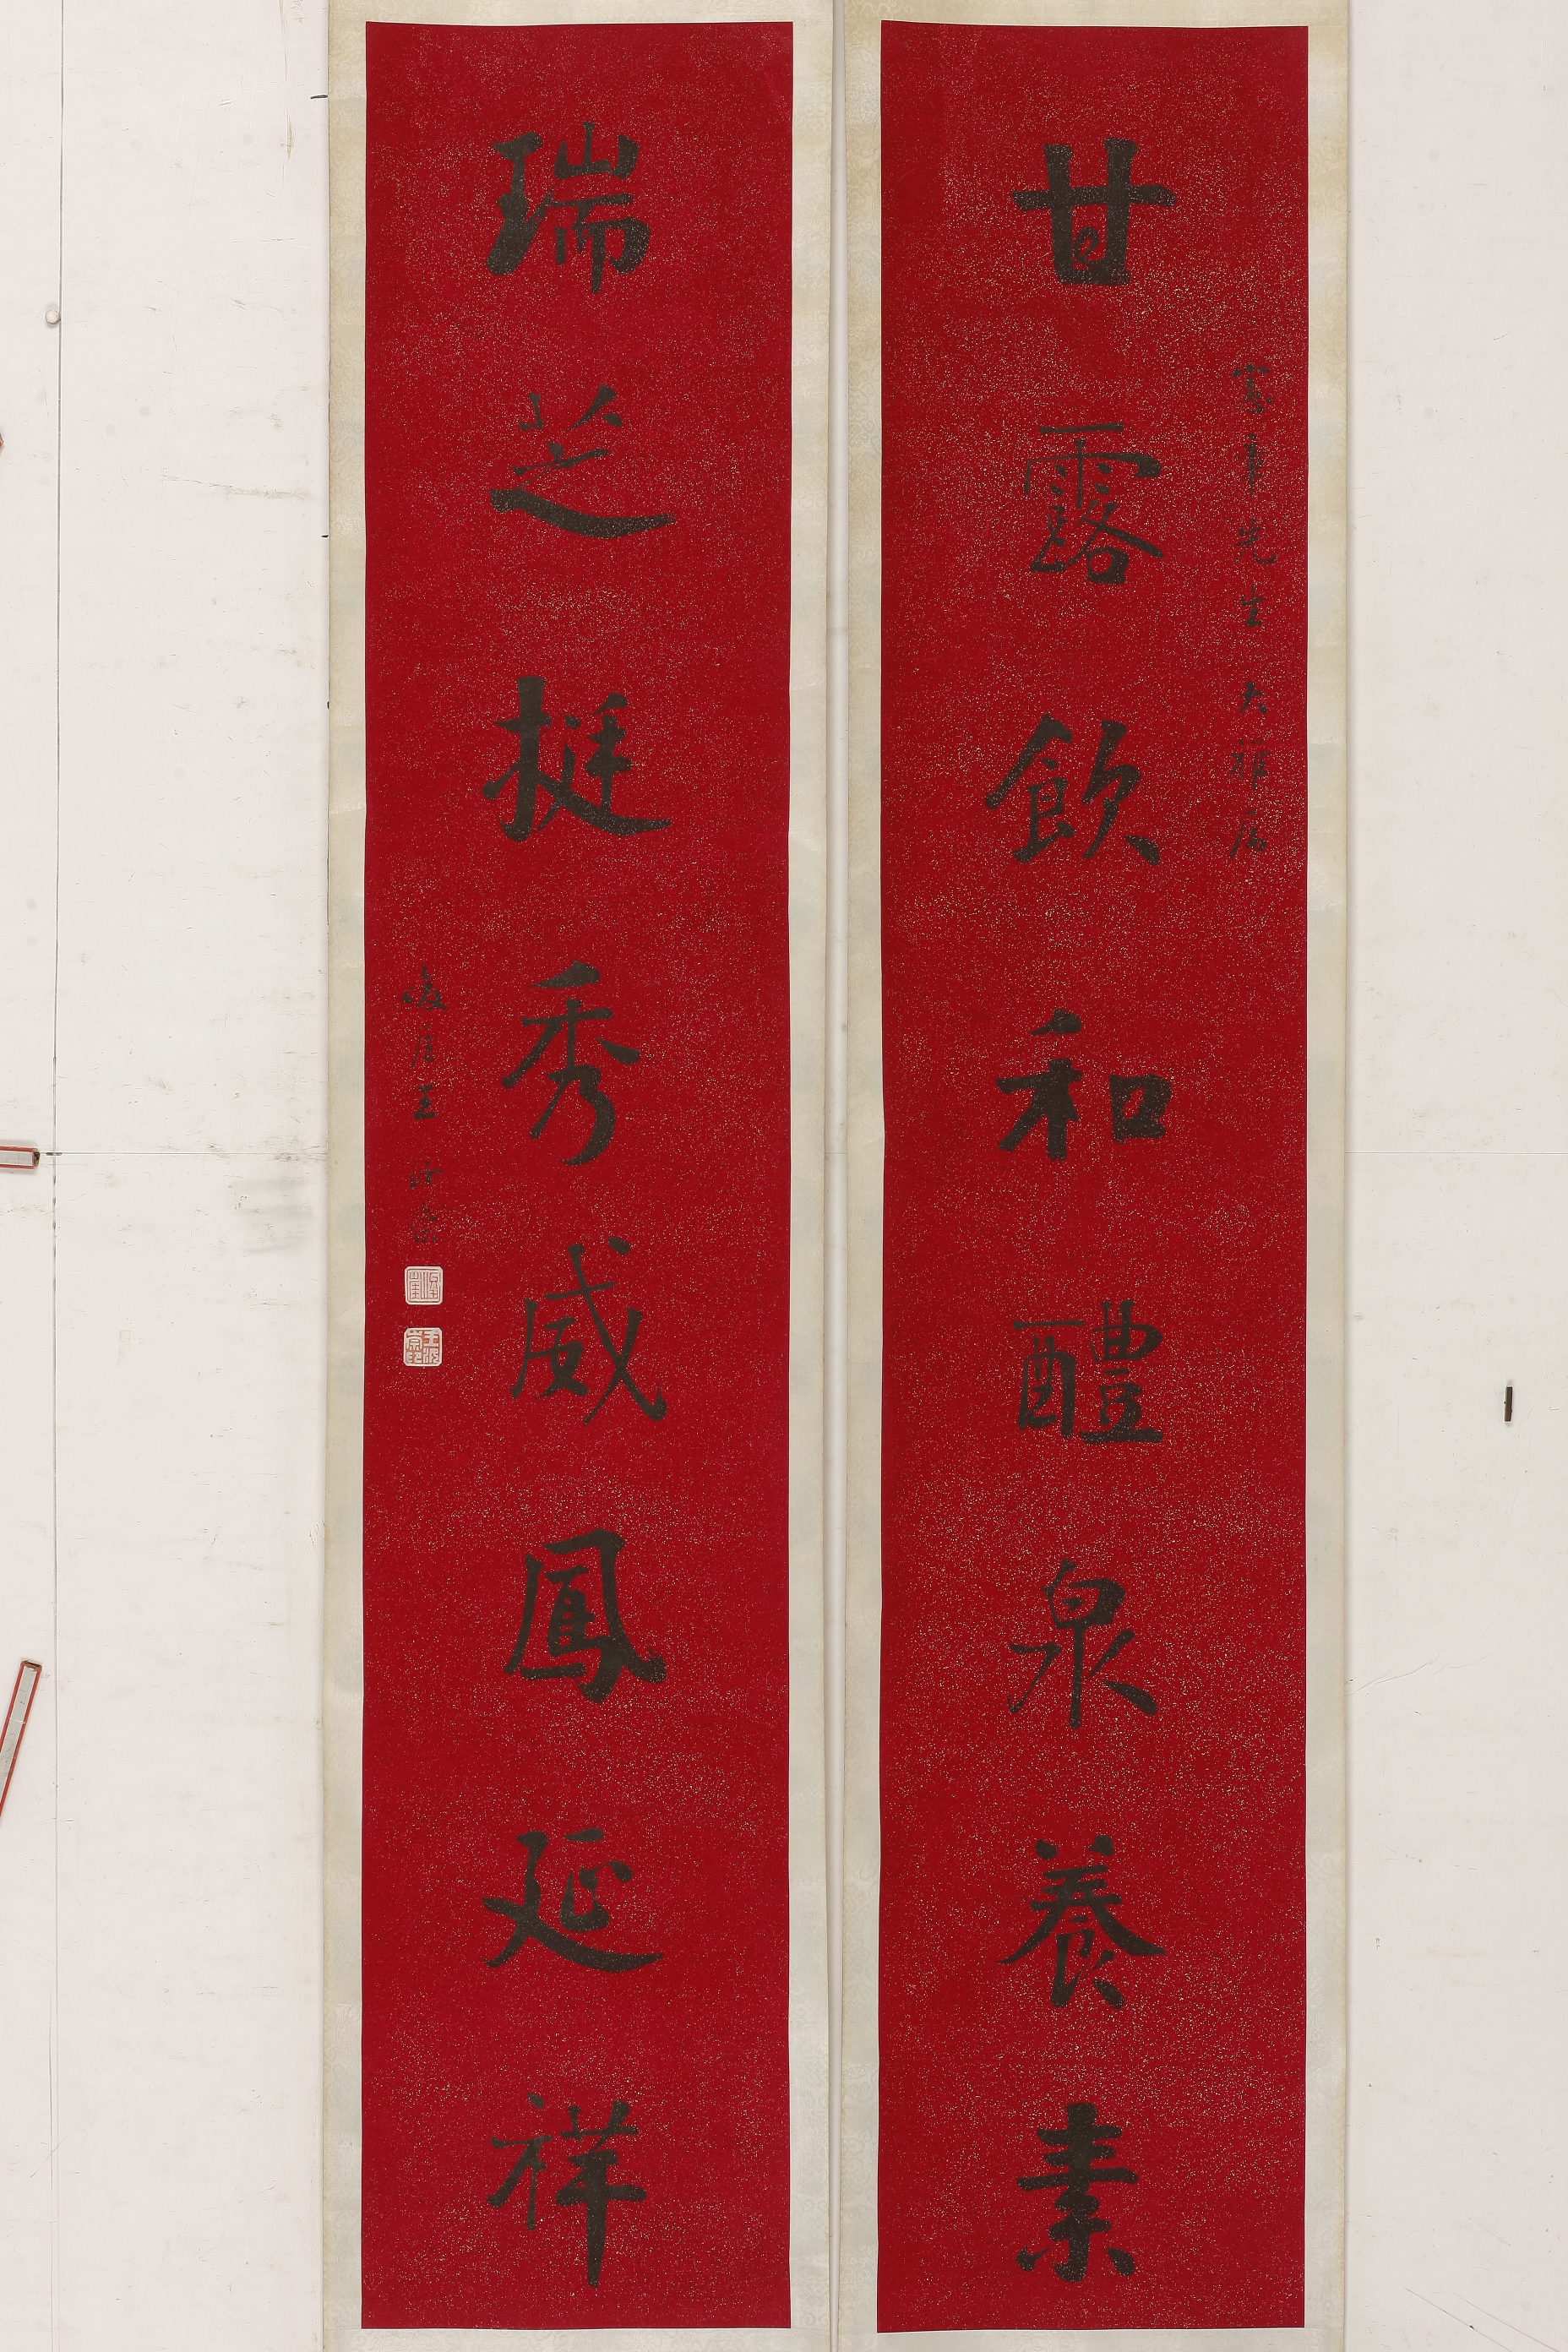 甘露飲和醴泉養素
先生大雅屬
瑞芝挺秀威鳳延祥
王